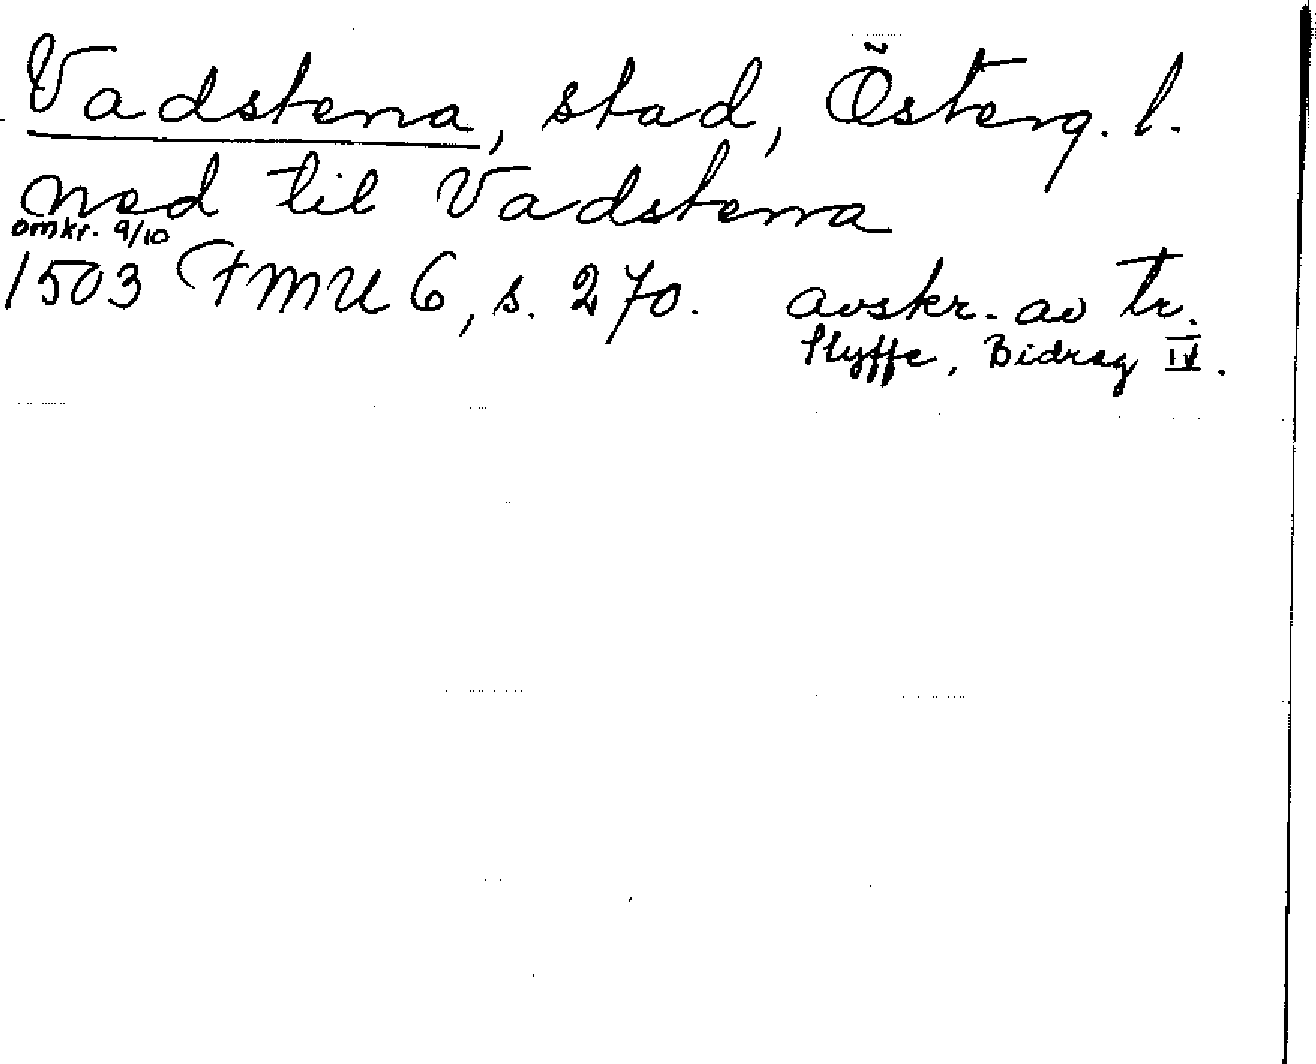 Vadstena, stad, Österg. l.
ned til Vadstena
omkr. 9/10
1503 FMU 6, s. 270. avskr. av tr.
Styffe, Bidrag IV.